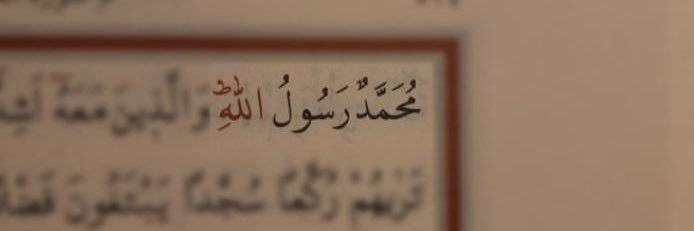 مُحَمَّدٌ رَسُولُ اللّٰهِ وَالَّذِينَ مَعَهُ
تَرٰيهُمْ رُكَّعًا سُجَّدًا يَبْتَغُونَ